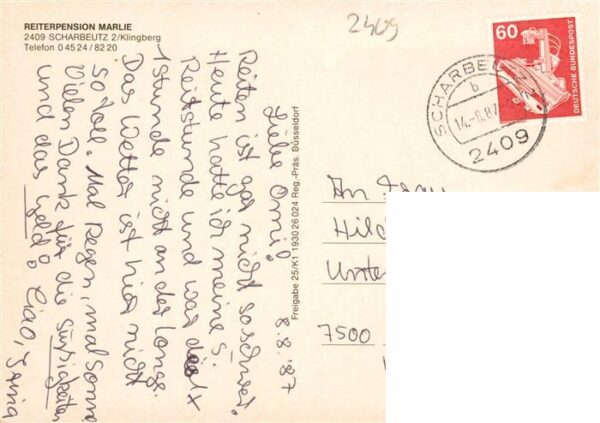 REITERPENSION MARLIE
2409 SCHARBEUTZ 2/Klingberg
Telefon 0 45 24 / 82 20
2409
60
DEUTSCHE BUNDESPOST
SCHARBEUTZ
b
14.-8.87
2409
8.8.87
Liebe Omi!
Reiten ist gar nicht so schwer.
Heute hatte ich meine 5.
Reitstunde und war das 1x
1 Stunde nicht an der Longe.
Das Wetter ist hier nicht
so toll. Mal Regen, mal Sonne
Vielen Dank für die Süßigkeiten
und das Geld! Ciao,
Freigabe 25/K1 193026024 Reg.-Präs. Düsseldorf
An Frau
Hild
Unter
7500